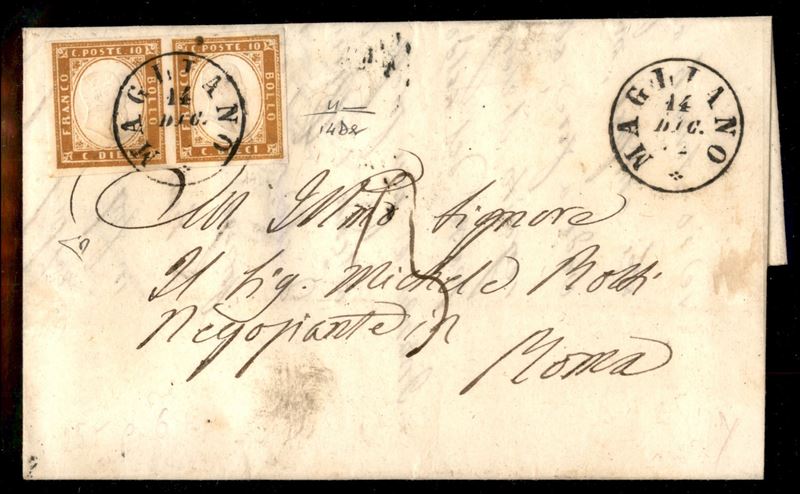 C. POSTE 10
FRANCO
BOLLO
C. DIECI
C. POSTE 10
BOLLO
C. DIECI
MAGLIANO
14
DIC.
14De
MAGLIANO
14
DIC.
All Illmo Signore
Il Sig. Michele Rossi
Negoziante in
Roma